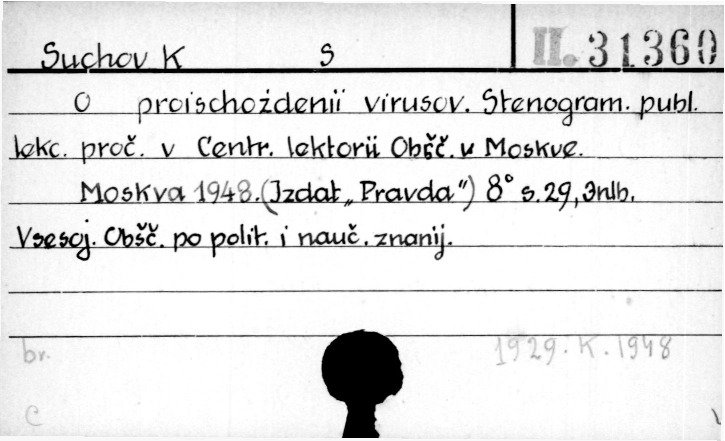 Suchov K S II. 31360
O proischoždenii virusov. Stenogram. publ.
lekc. proč. v Centr. lektorii Obšč. v Moskve.
Moskva 1948. (Izdat „Pravda") 8° s. 29, 3nlb.
Vsesoj. Obšč. po polit. i nauč. znanij.
br. 1929. K. 1948
C